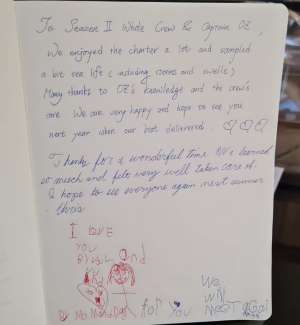 To Seazen II Whole Crew & Captain OZ,
We enjoyed the charter a lot and sampled
a bit sea life (including storms and swells)
Many thanks to OZ's knowledge and the crew's
care. We are very happy and hope to see you
next year when our boat delivered.
Thanks for a wonderful time. We learned
so much and felt very well taken care of.
I hope to see everyone again next summer.
I LOVE
YOU
and
We
will
for you